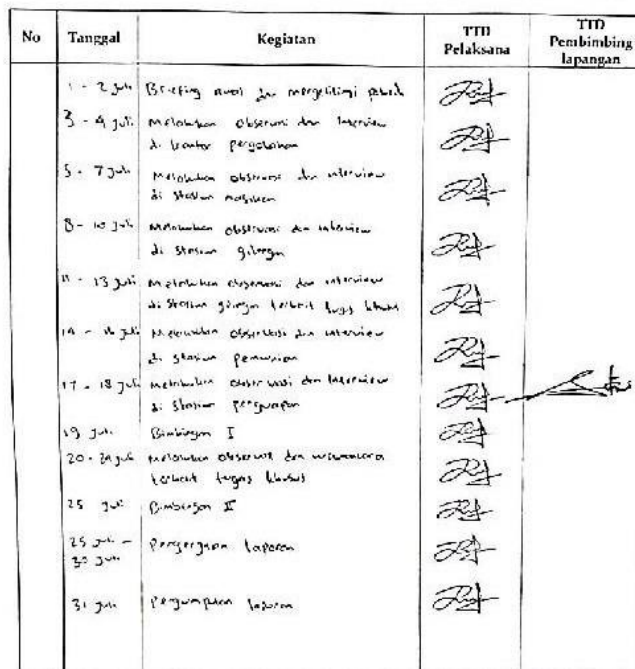 No Tanggal Kegiatan TTD Pelaksana TTD Pembimbing lapangan
1 - 2 Juli Briefing awal dan mengelilingi pabrik
3 - 4 Juli Melakukan observasi dan Interview
di kantor pengolahan
5 - 7 Juli Melakukan observasi dan interview
di stasiun
8 - 10 Juli Melakukan observasi dan interview
di stasiun gilingan
11 - 13 Juli Melakukan observasi dan interview
di stasiun gilingan terkait tugas khusus
14 - 16 Juli Melakukan observasi dan interview
di stasiun pemurnian
17 - 18 Juli Melakukan observasi dan Interview
di stasiun penguapan
19 Juli Bimbingan I
20 - 24 Juli Melakukan observasi dan wawancara
terkait tugas khusus
25 Juli Bimbingan II
25 Juli - Pengerjaan laporan
30 Juli
31 Juli Pengumpulan laporan